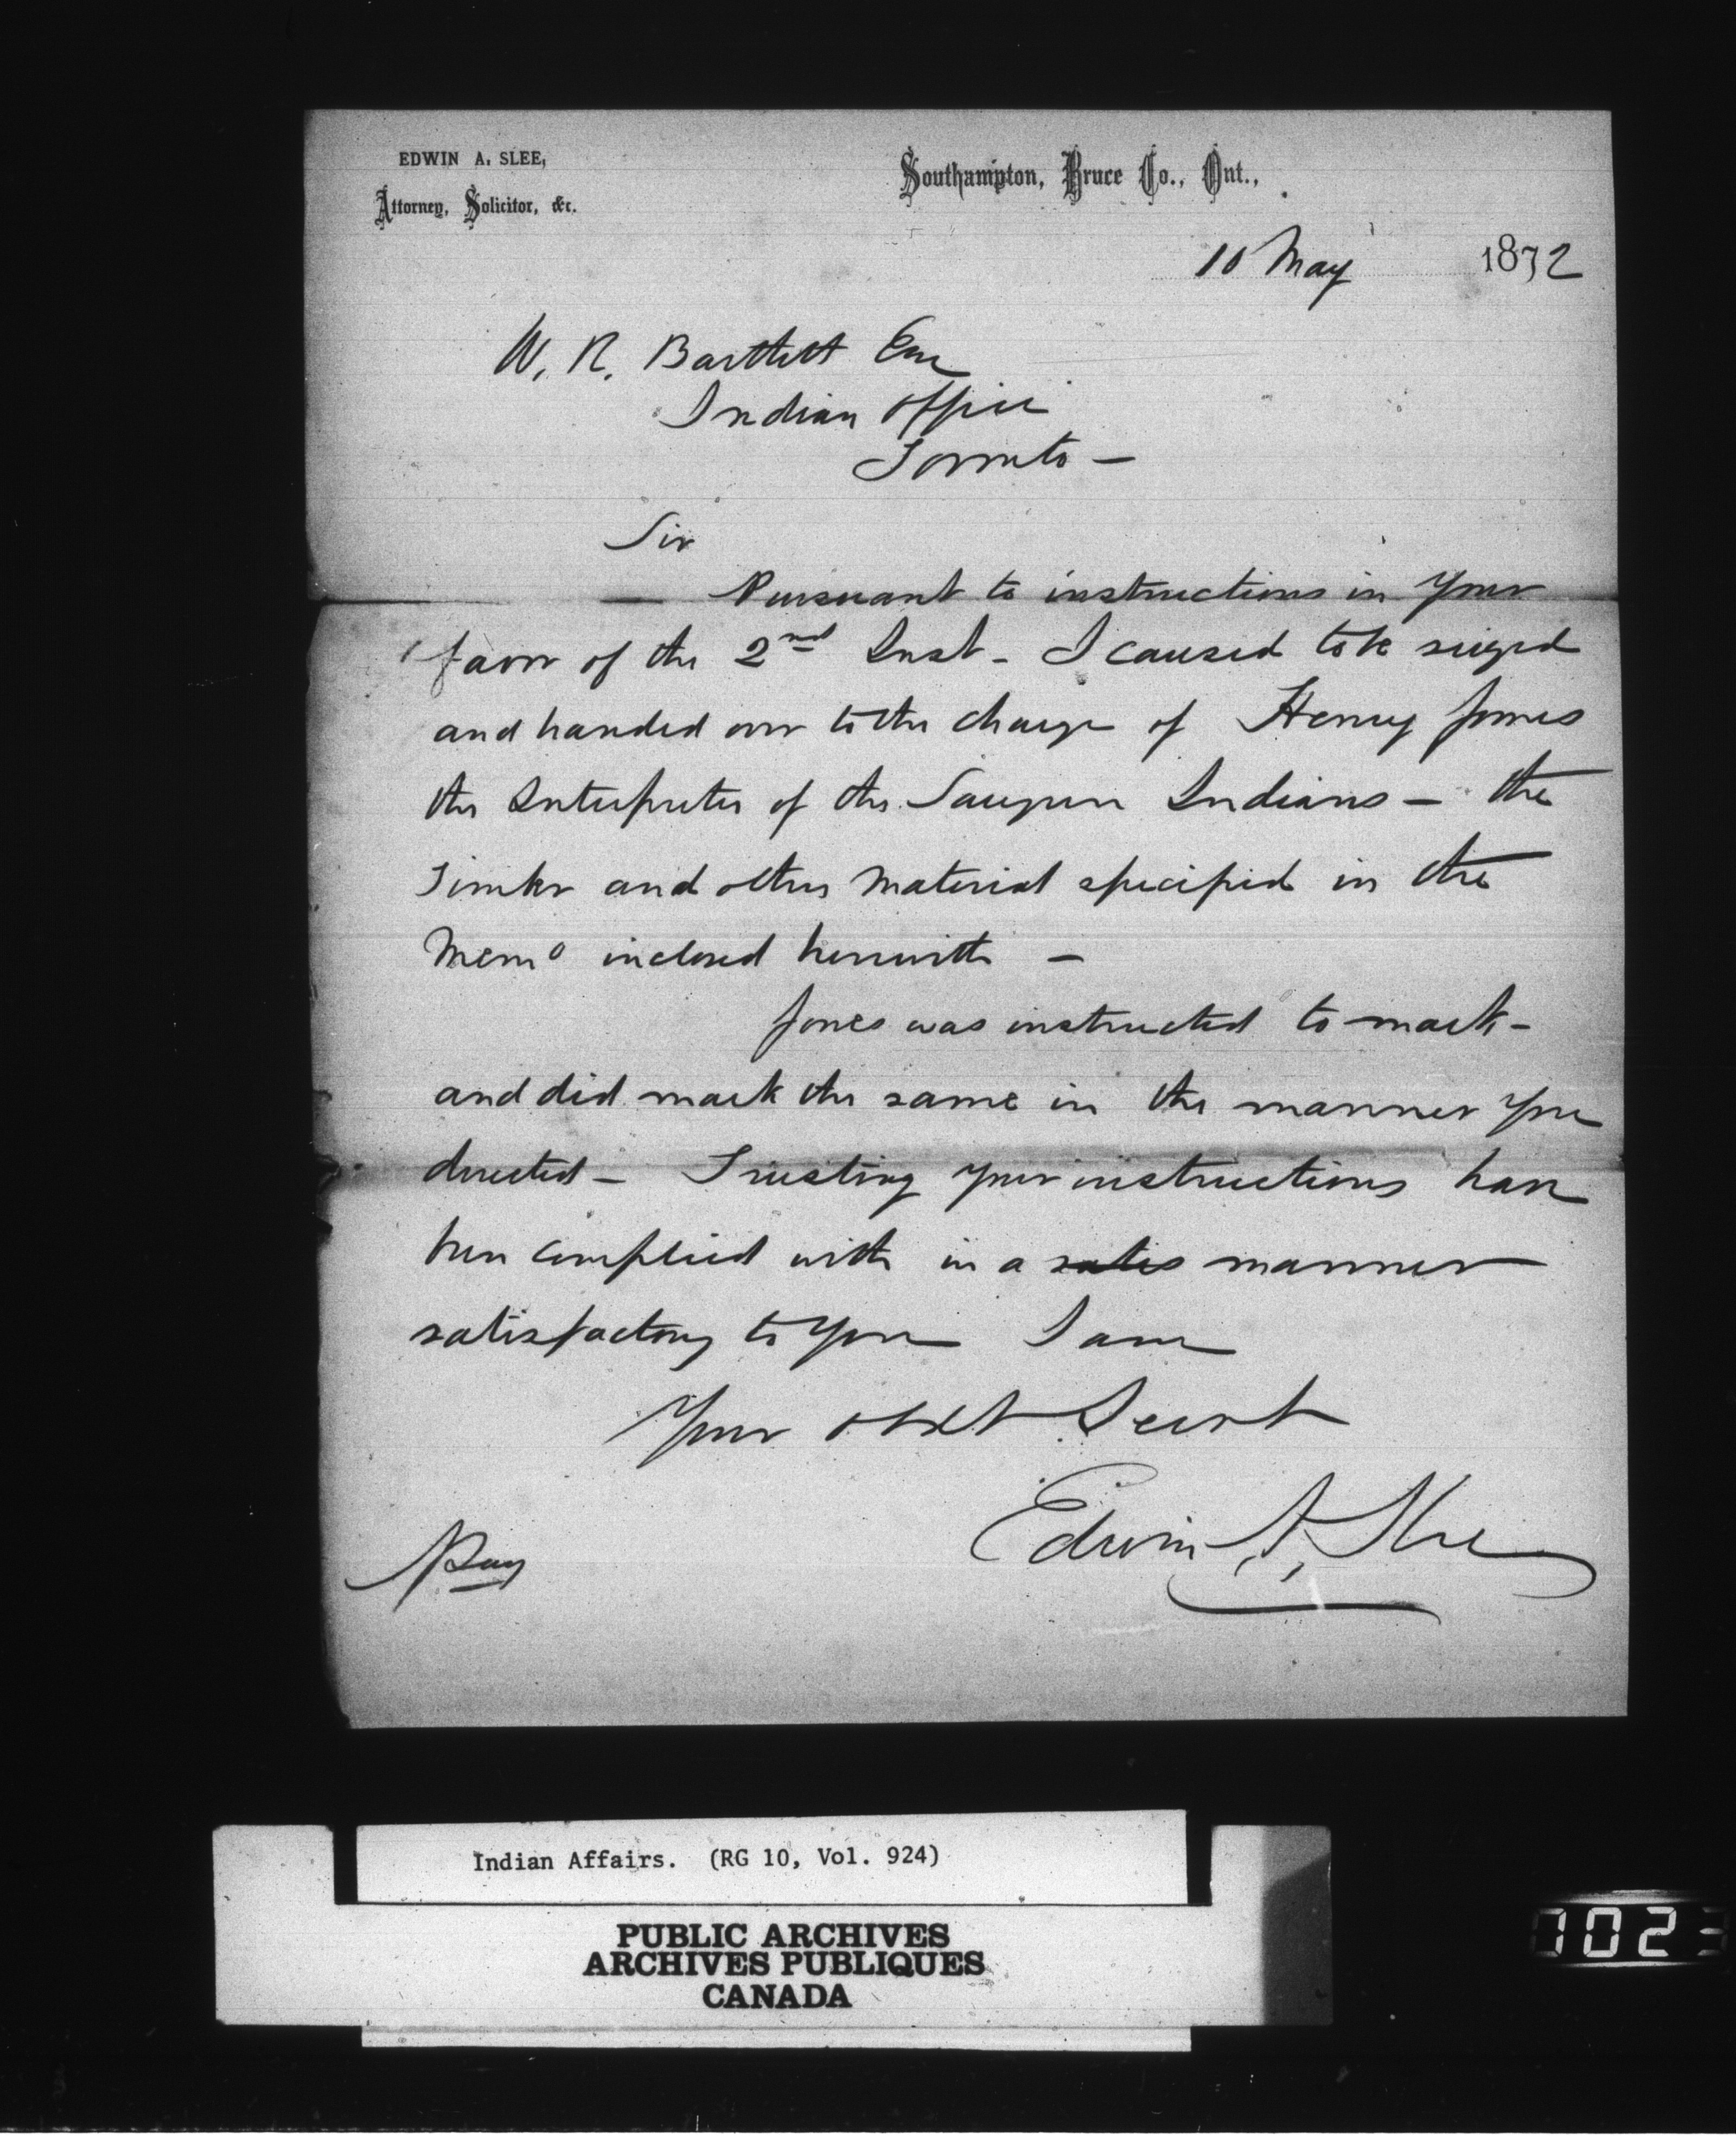 EDWIN A. SLEE,
Attorney, Solicitor, &c.
Southampton, Bruce Co., Ont.,
10 May 1872
W. R. Bartlett Esq
Indian Office
Toronto —
Sir
— Pursuant to instructions in your
favor of the 2nd Inst - I caused to be seized
and handed over to the charge of Henry Jones
the Interpreter of the Saugeen Indians — the
Timber and other material specified in the
Memo inclosed herewith —
Jones was instructed to mark -
and did mark the same in the manner you
directed — Trusting your instructions have
been complied with in a satis manner
satisfactory to you I am
Your obdt Servt
Edwin A. Slee
Indian Affairs. (RG 10, Vol. 924)
PUBLIC ARCHIVES
ARCHIVES PUBLIQUES
CANADA
1023